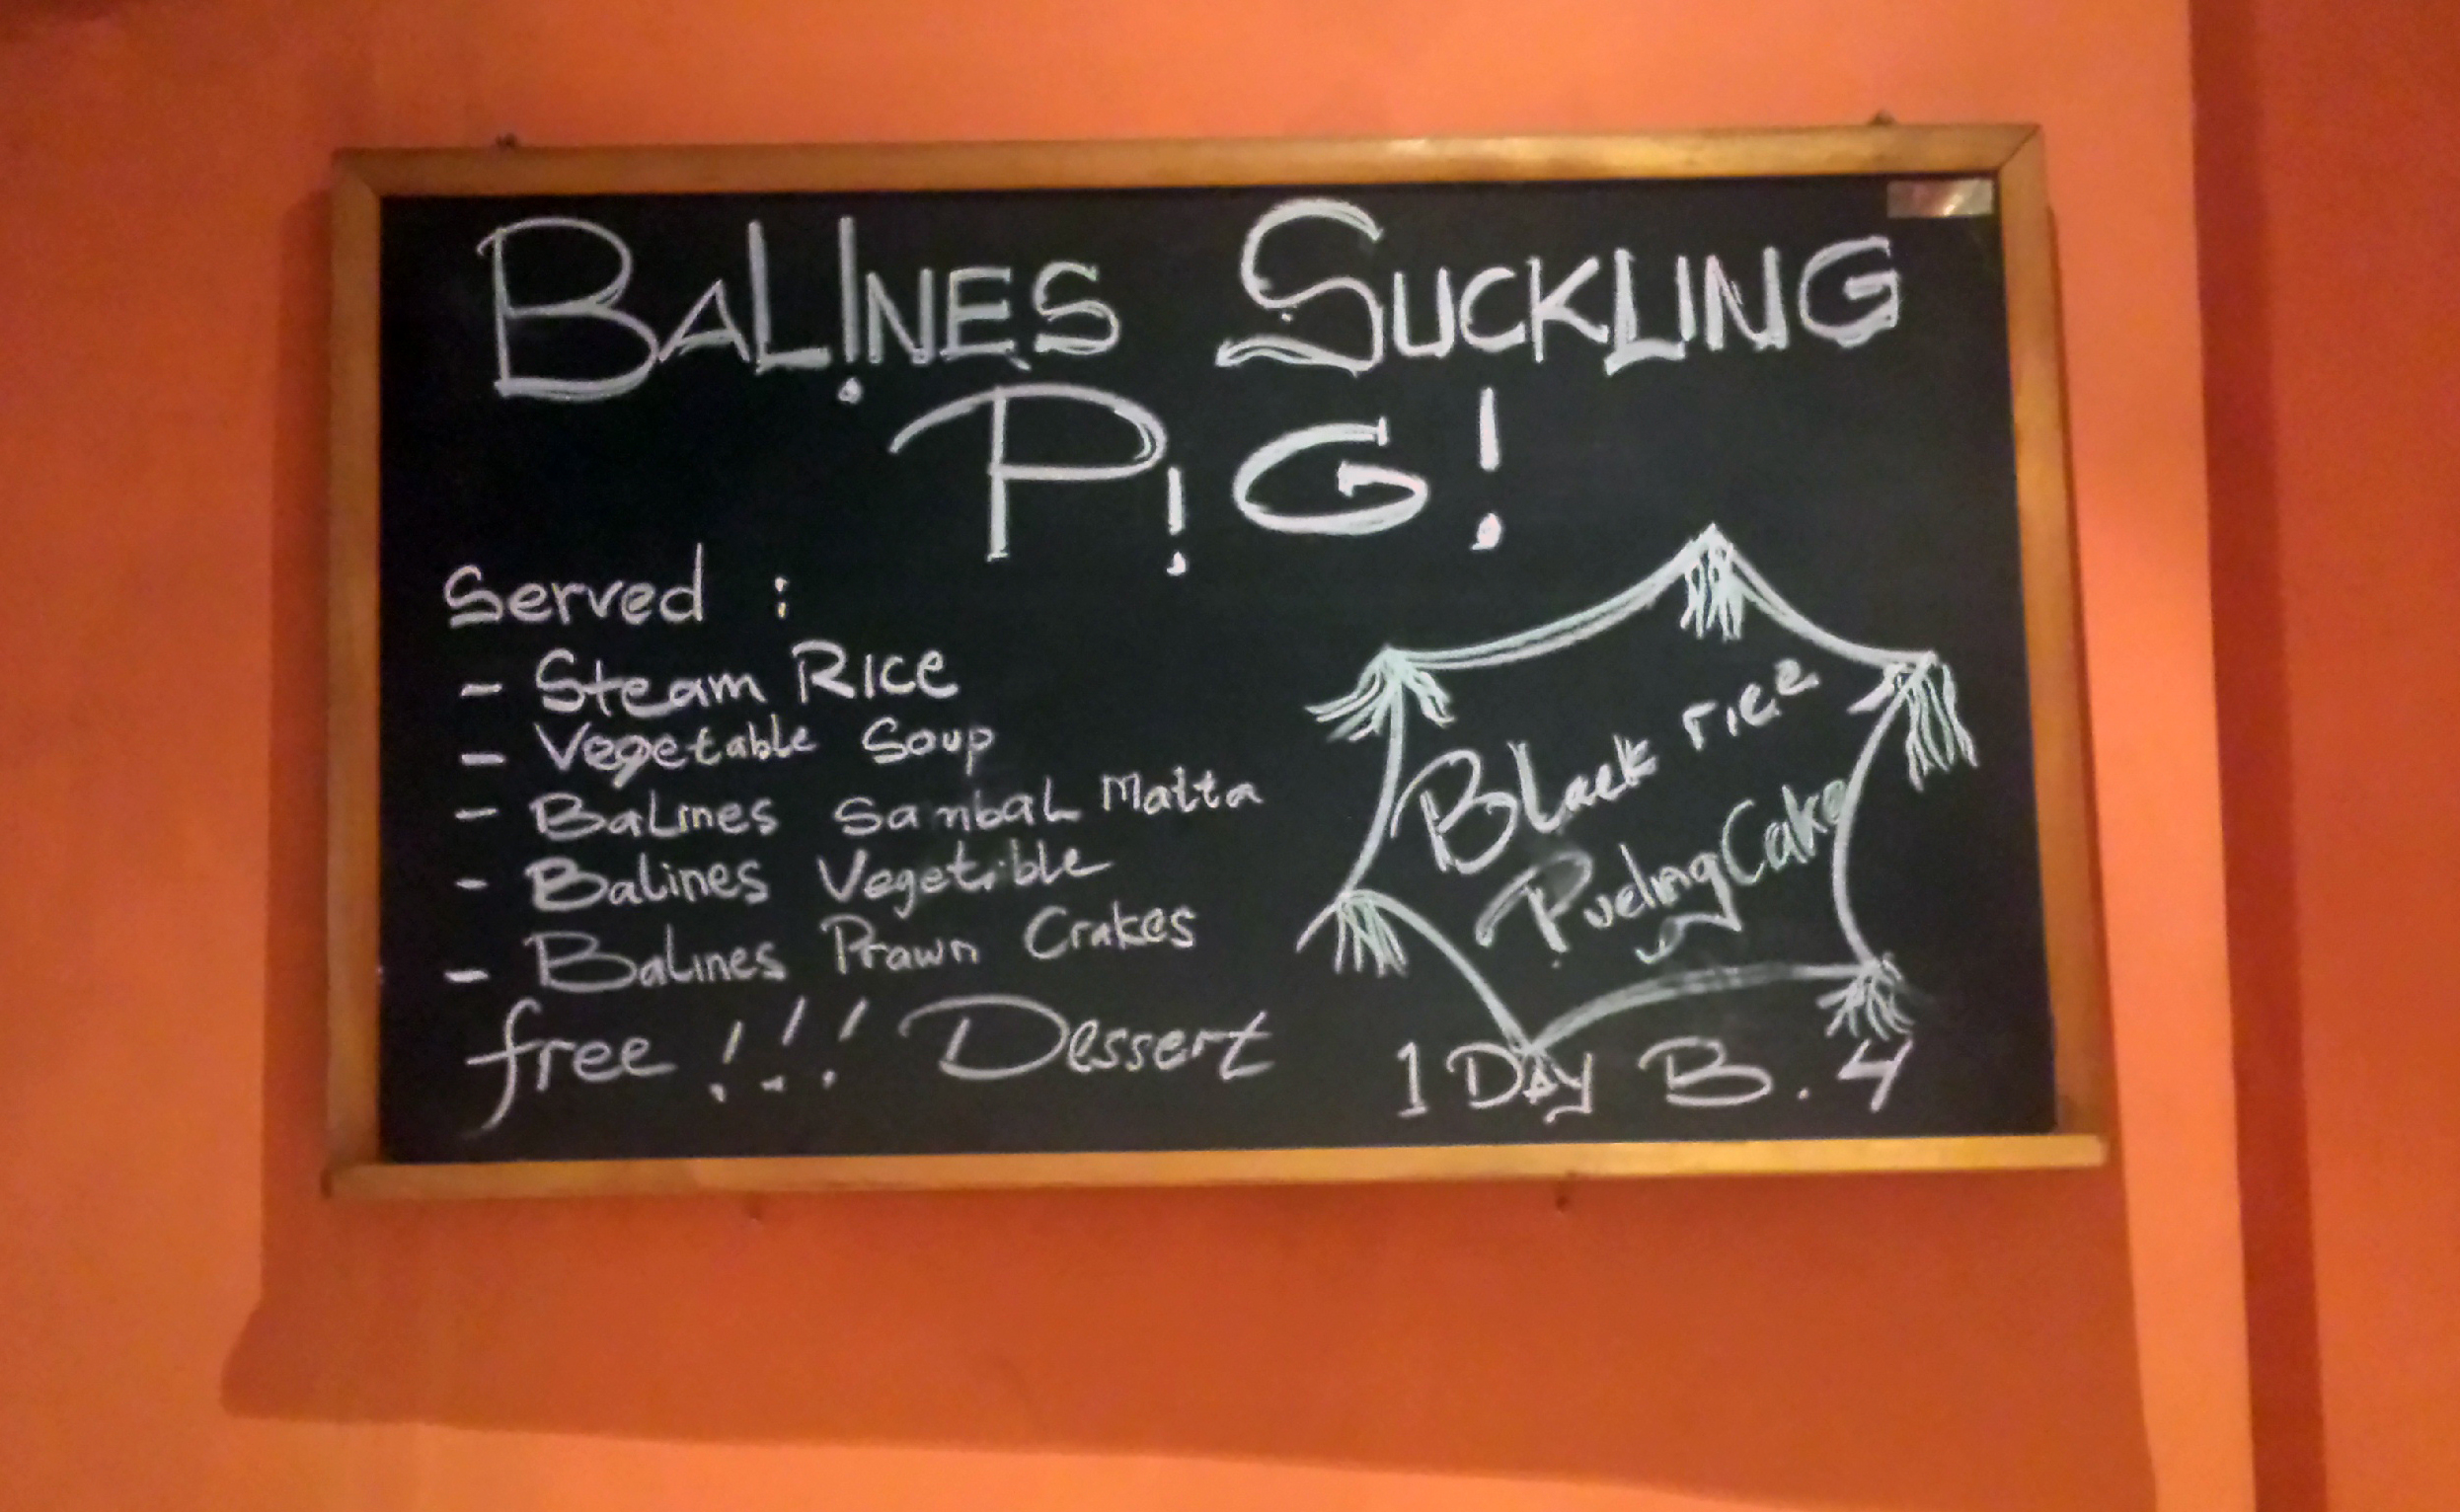 BALINES SUCKLING
PIG!
Served :
- Steam RICE
- Vegetable Soup
- BaLines SambaL Matta
- Balines Vegetible
- Balines Prawn Crakes
free !!! Dessert
Black rice
Puding Cake
1 DAY B. 4